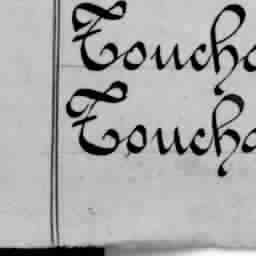 Toucha
Toucha